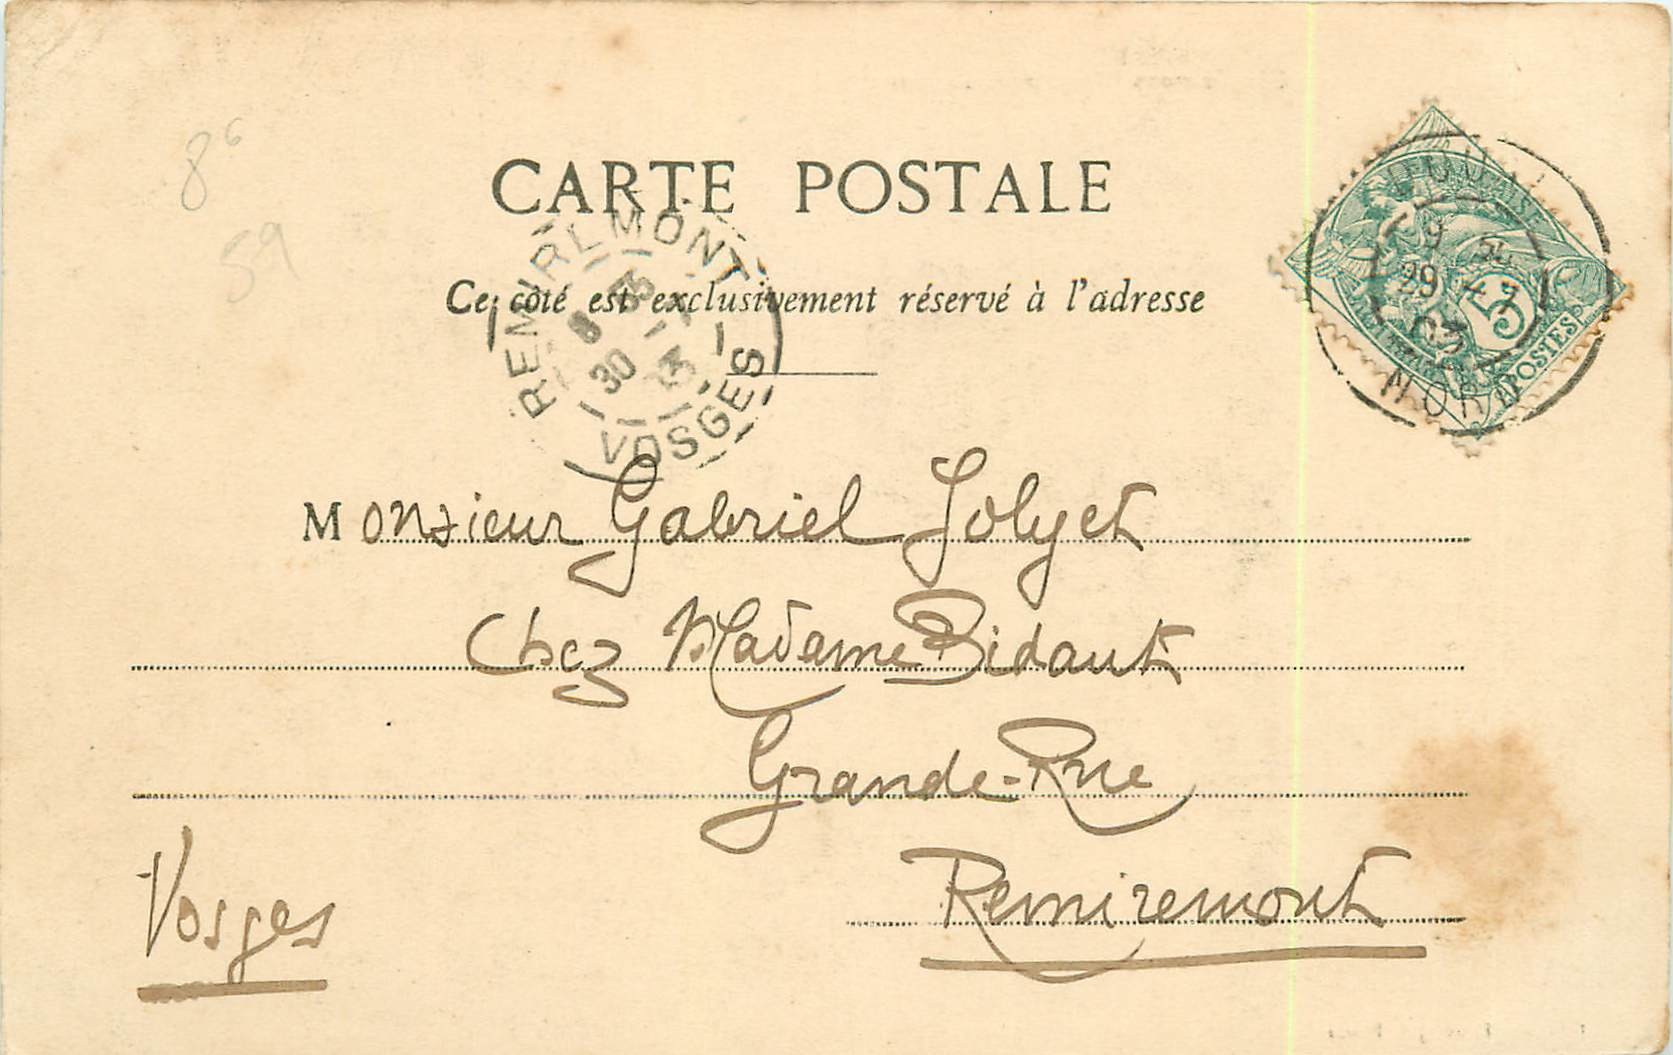 8⁶
59
CARTE POSTALE
Ce côté est exclusivement réservé à l'adresse
REMIREMONT
8 35
30
VOSGES
29
03
NORD
5
POSTES
Monsieur Gabriel Jolyet
Chez Madame Bidaut
Grande-Rue
Remiremont
Vosges